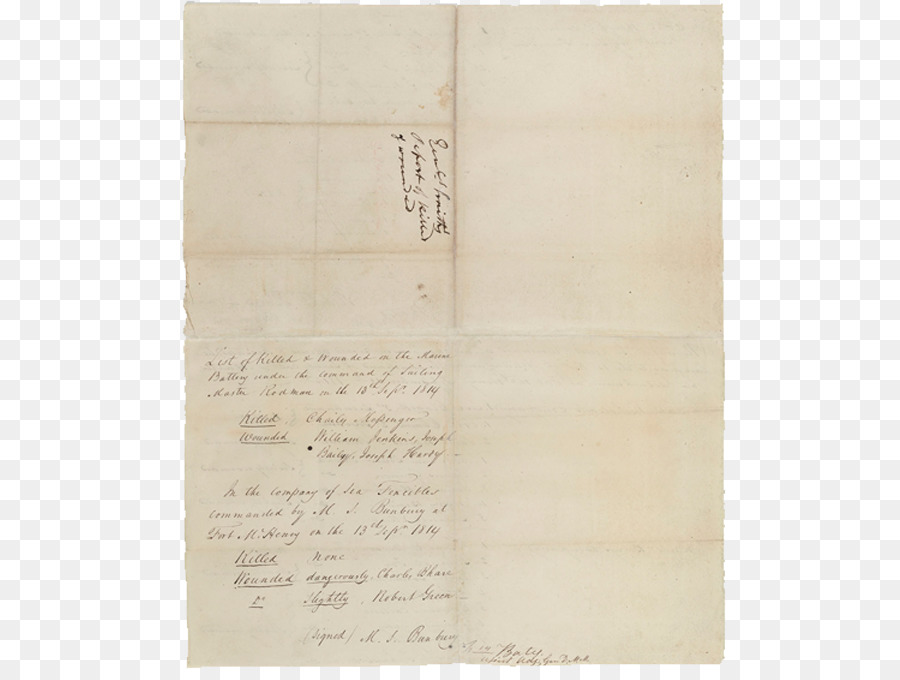 Genl Smith's
report of killed
& wounded
List of Killed & Wounded on the Marine
Battery under the command of Sailing
Master Rodman on the 13th Sepr. 1814
Killed Charles Messenger
Wounded William Jenkens, Joseph
Baily, Joseph Hardy
In the company of Sea Fencibles
commanded by M. S. Bunbury at
Fort McHenry on the 13th Sepr. 1814
Killed None
Wounded dangerously, Charles
Do slightly, Robert Green
(Signed) M. S. Bunbury